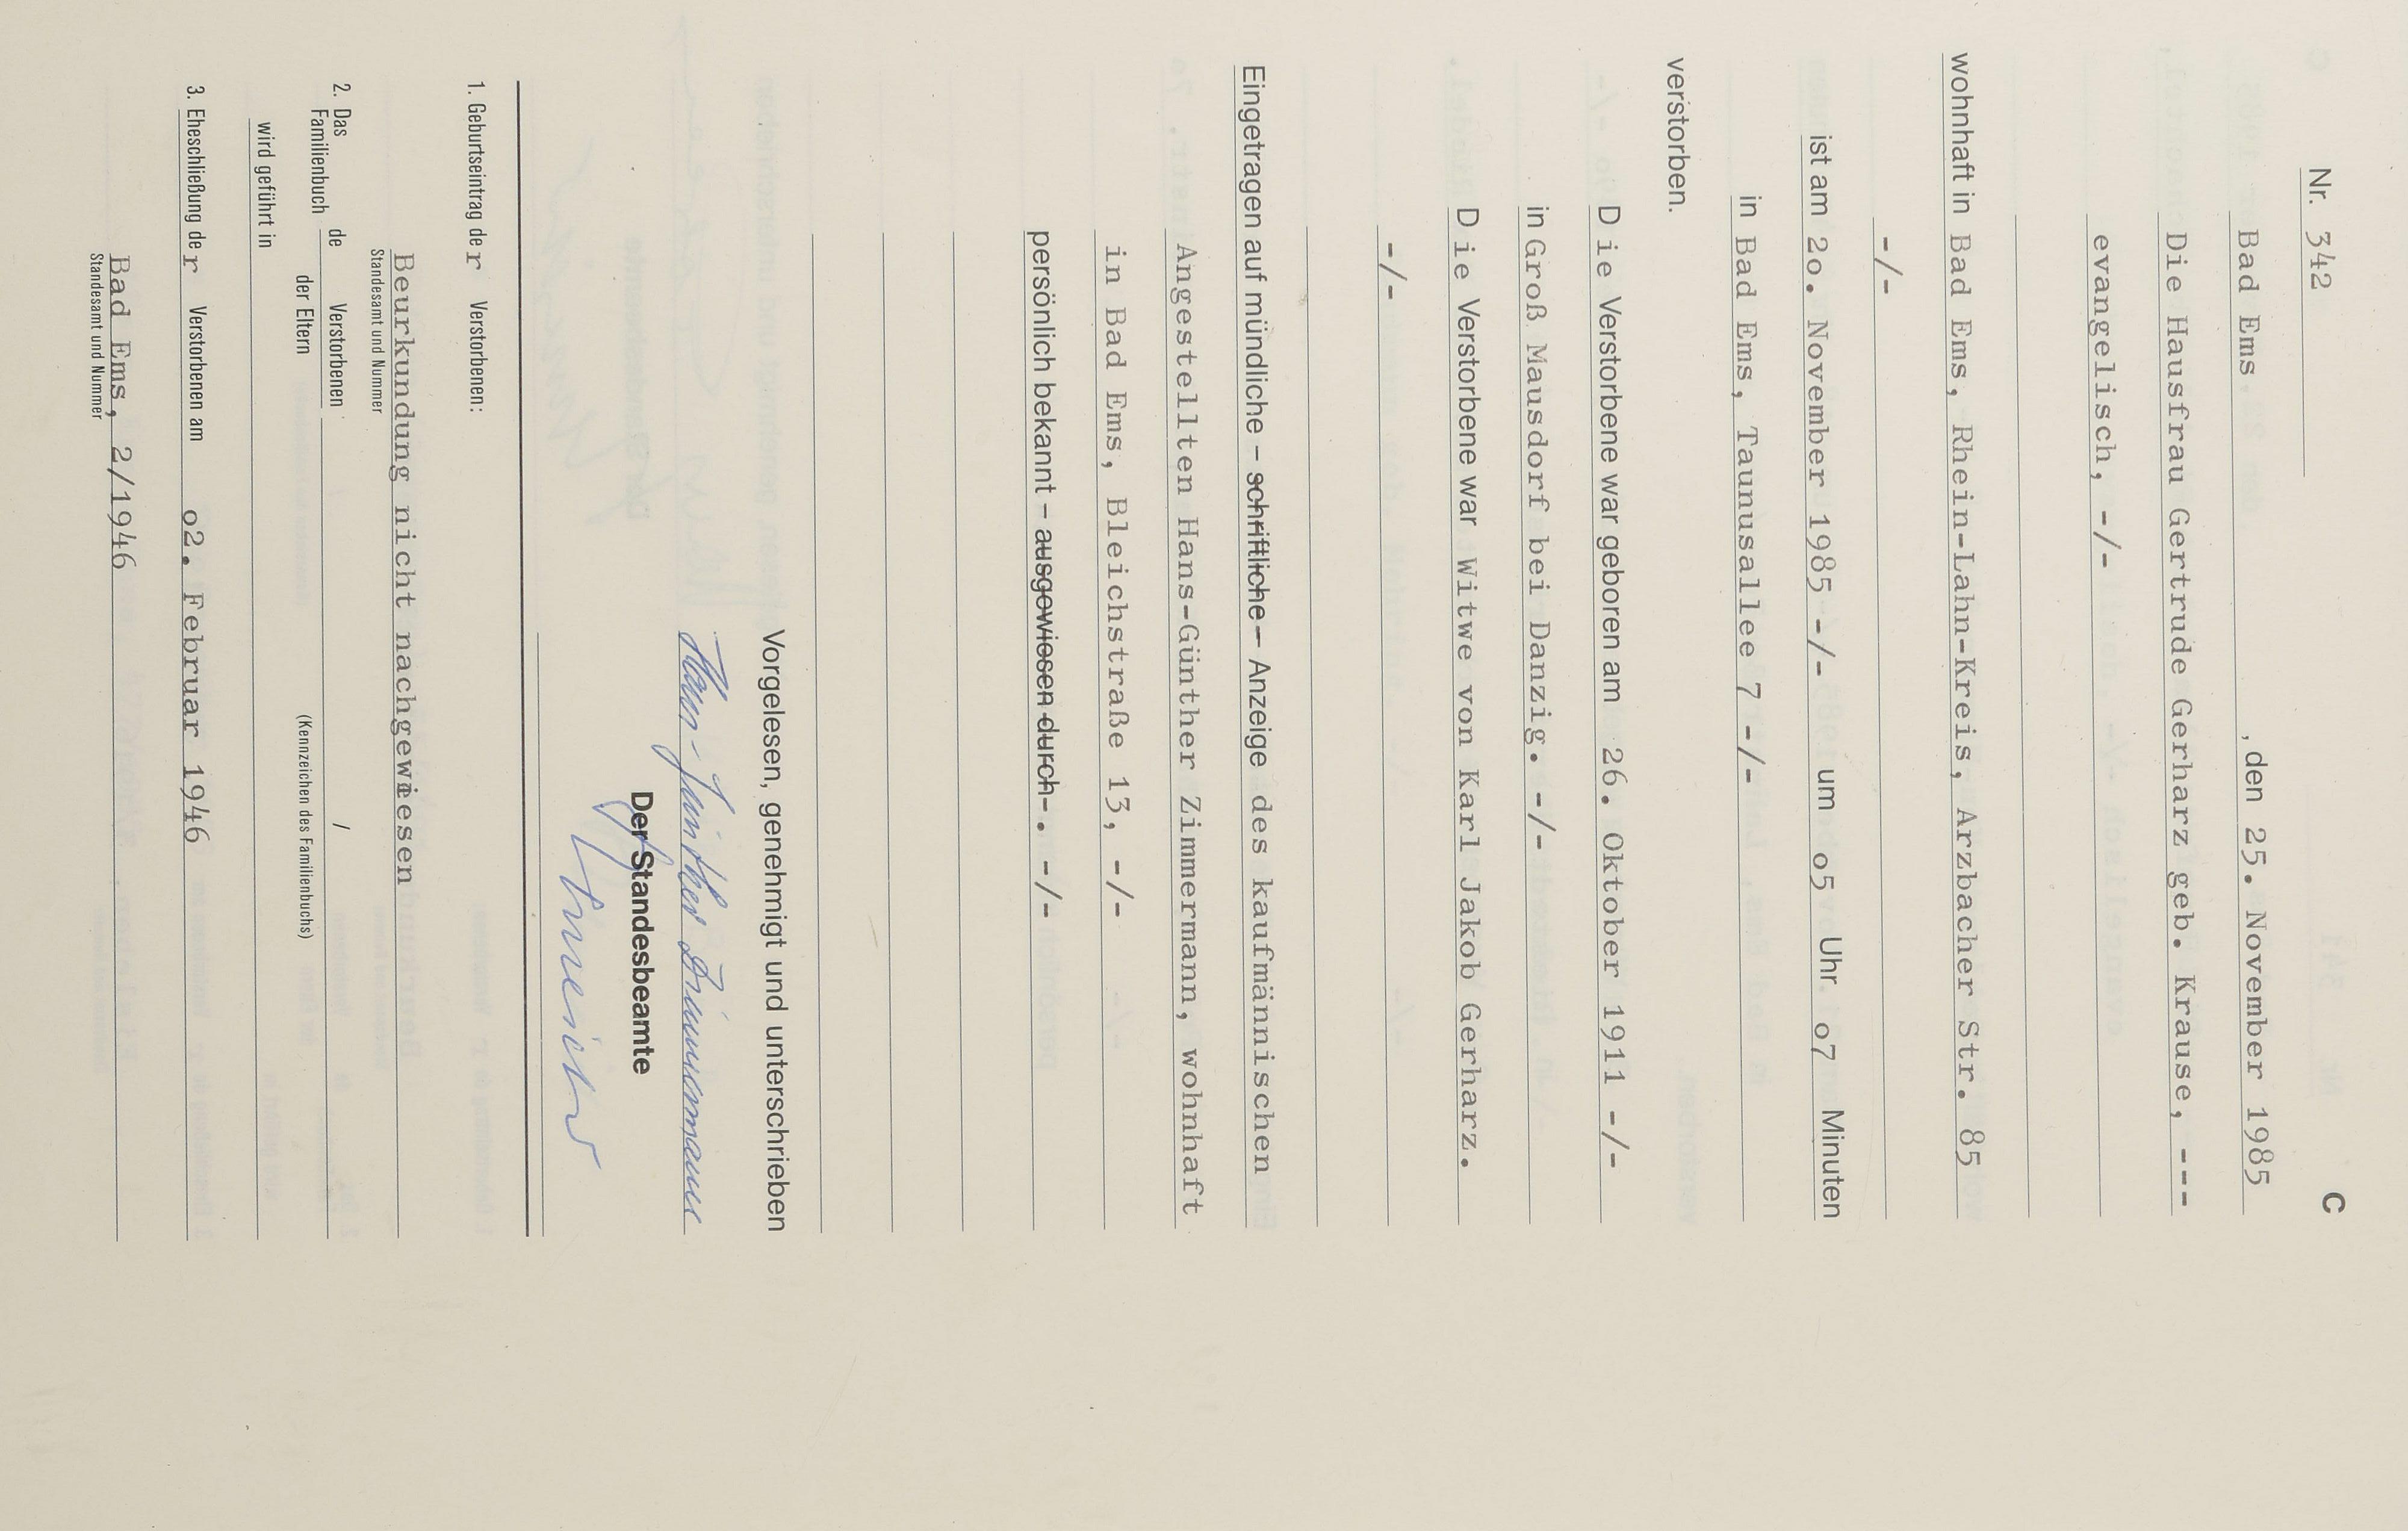 C
Nr. 342
Bad Ems, den 25. November 1985
Die Hausfrau Gertrude Gerharz geb. Krause, ---
evangelisch, -/-
wohnhaft in Bad Ems, Rhein-Lahn-Kreis, Arzbacher Str. 85
-/-
ist am 2o. November 1985 -/- um o5 Uhr o7 Minuten
in Bad Ems, Taunusallee 7 -/-
verstorben.
D ie Verstorbene war geboren am 26. Oktober 1911 -/-
in Groß Mausdorf bei Danzig. -/-
D ie Verstorbene war Witwe von Karl Jakob Gerharz.
-/-
Eingetragen auf mündliche – schriftliche – Anzeige des kaufmännischen
Angestellten Hans-Günther Zimmermann, wohnhaft
in Bad Ems, Bleichstraße 13, -/-
persönlich bekannt – ausgewiesen durch-. -/-
Vorgelesen, genehmigt und unterschrieben
Hans-Günther Zimmermann
Der Standesbeamte
1. Geburtseintrag der Verstorbenen:
Beurkundung nicht nachgewiesen
Standesamt und Nummer
2. Das Familienbuch de Verstorbenen /
der Eltern (Kennzeichen des Familienbuchs)
wird geführt in
3. Eheschließung der Verstorbenen am o2. Februar 1946
Bad Ems, 2/1946
Standesamt und Nummer